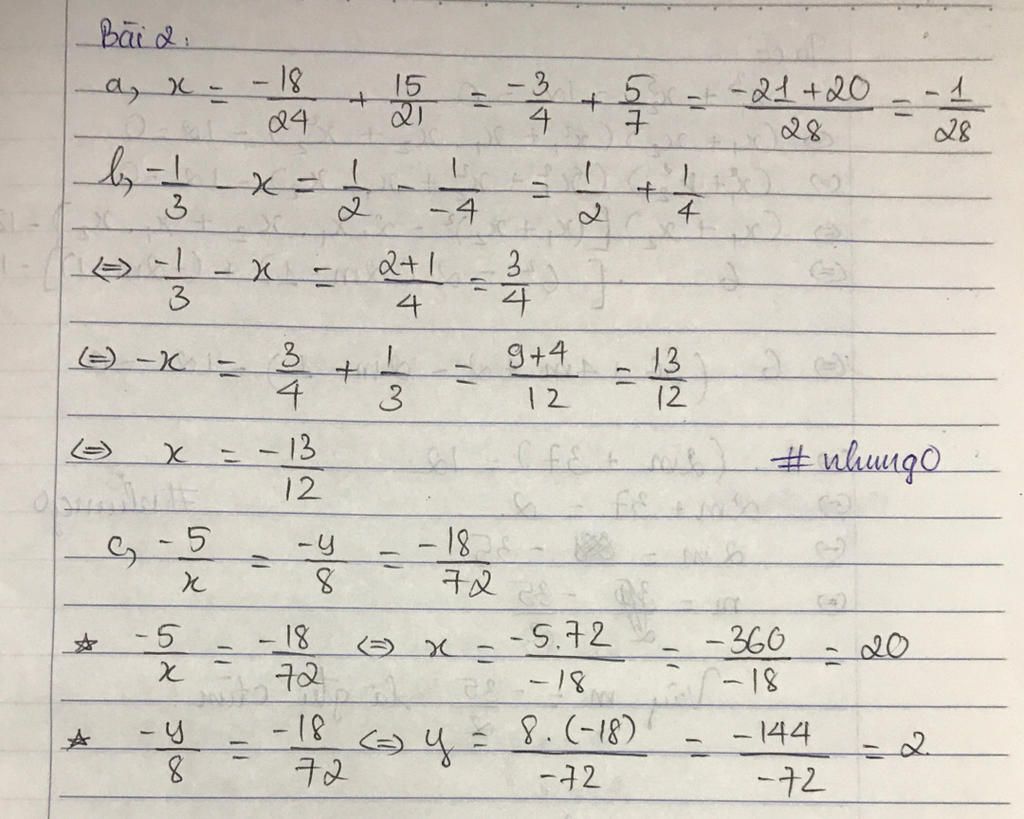 Bài 2:
a, x = -18/24 + 15/21 = -3/4 + 5/7 = (-21+20)/28 = -1/28
b, -1/3 - x = 1/2 - 1/-4 = 1/2 + 1/4
<=> -1/3 - x = (2+1)/4 = 3/4
<=> -x = 3/4 + 1/3 = (9+4)/12 = 13/12
<=> x = -13/12 #nhung0
c, -5/x = -y/8 = -18/72
* -5/x = -18/72 <=> x = -5.72/-18 = -360/-18 = 20
* -y/8 = -18/72 <=> y = 8.(-18)/-72 = -144/-72 = 2